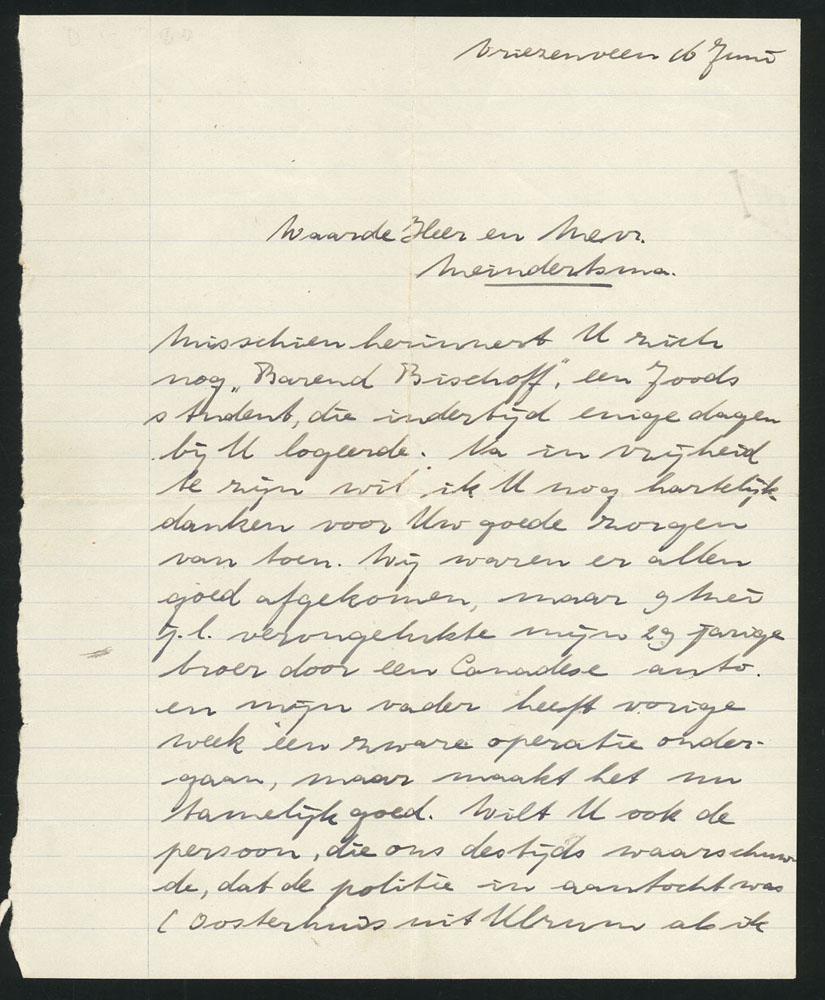 Vriezenveen 16 Juni
Waarde Heer en Mevr.
Meindertsma.
Misschien herinnert U zich
nog „Barend Bischoff", een Joods
student, die indertijd enige dagen
bij U logeerde. Na in vrijheid
te zijn wil ik U nog hartelijk
danken voor Uw goede zorgen
van toen. Wij waren er allen
goed afgekomen, maar 9 Mei
j.l. verongelukte mijn 29 jarige
broer door een Canadese auto.
en mijn vader heeft vorige
week een zware operatie onder-
gaan, maar maakt het nu
tamelijk goed. Wilt U ook de
persoon, die ons destijds waarschuw-
de, dat de politie in aantocht was
(Oosterhuis uit Ulrum als ik